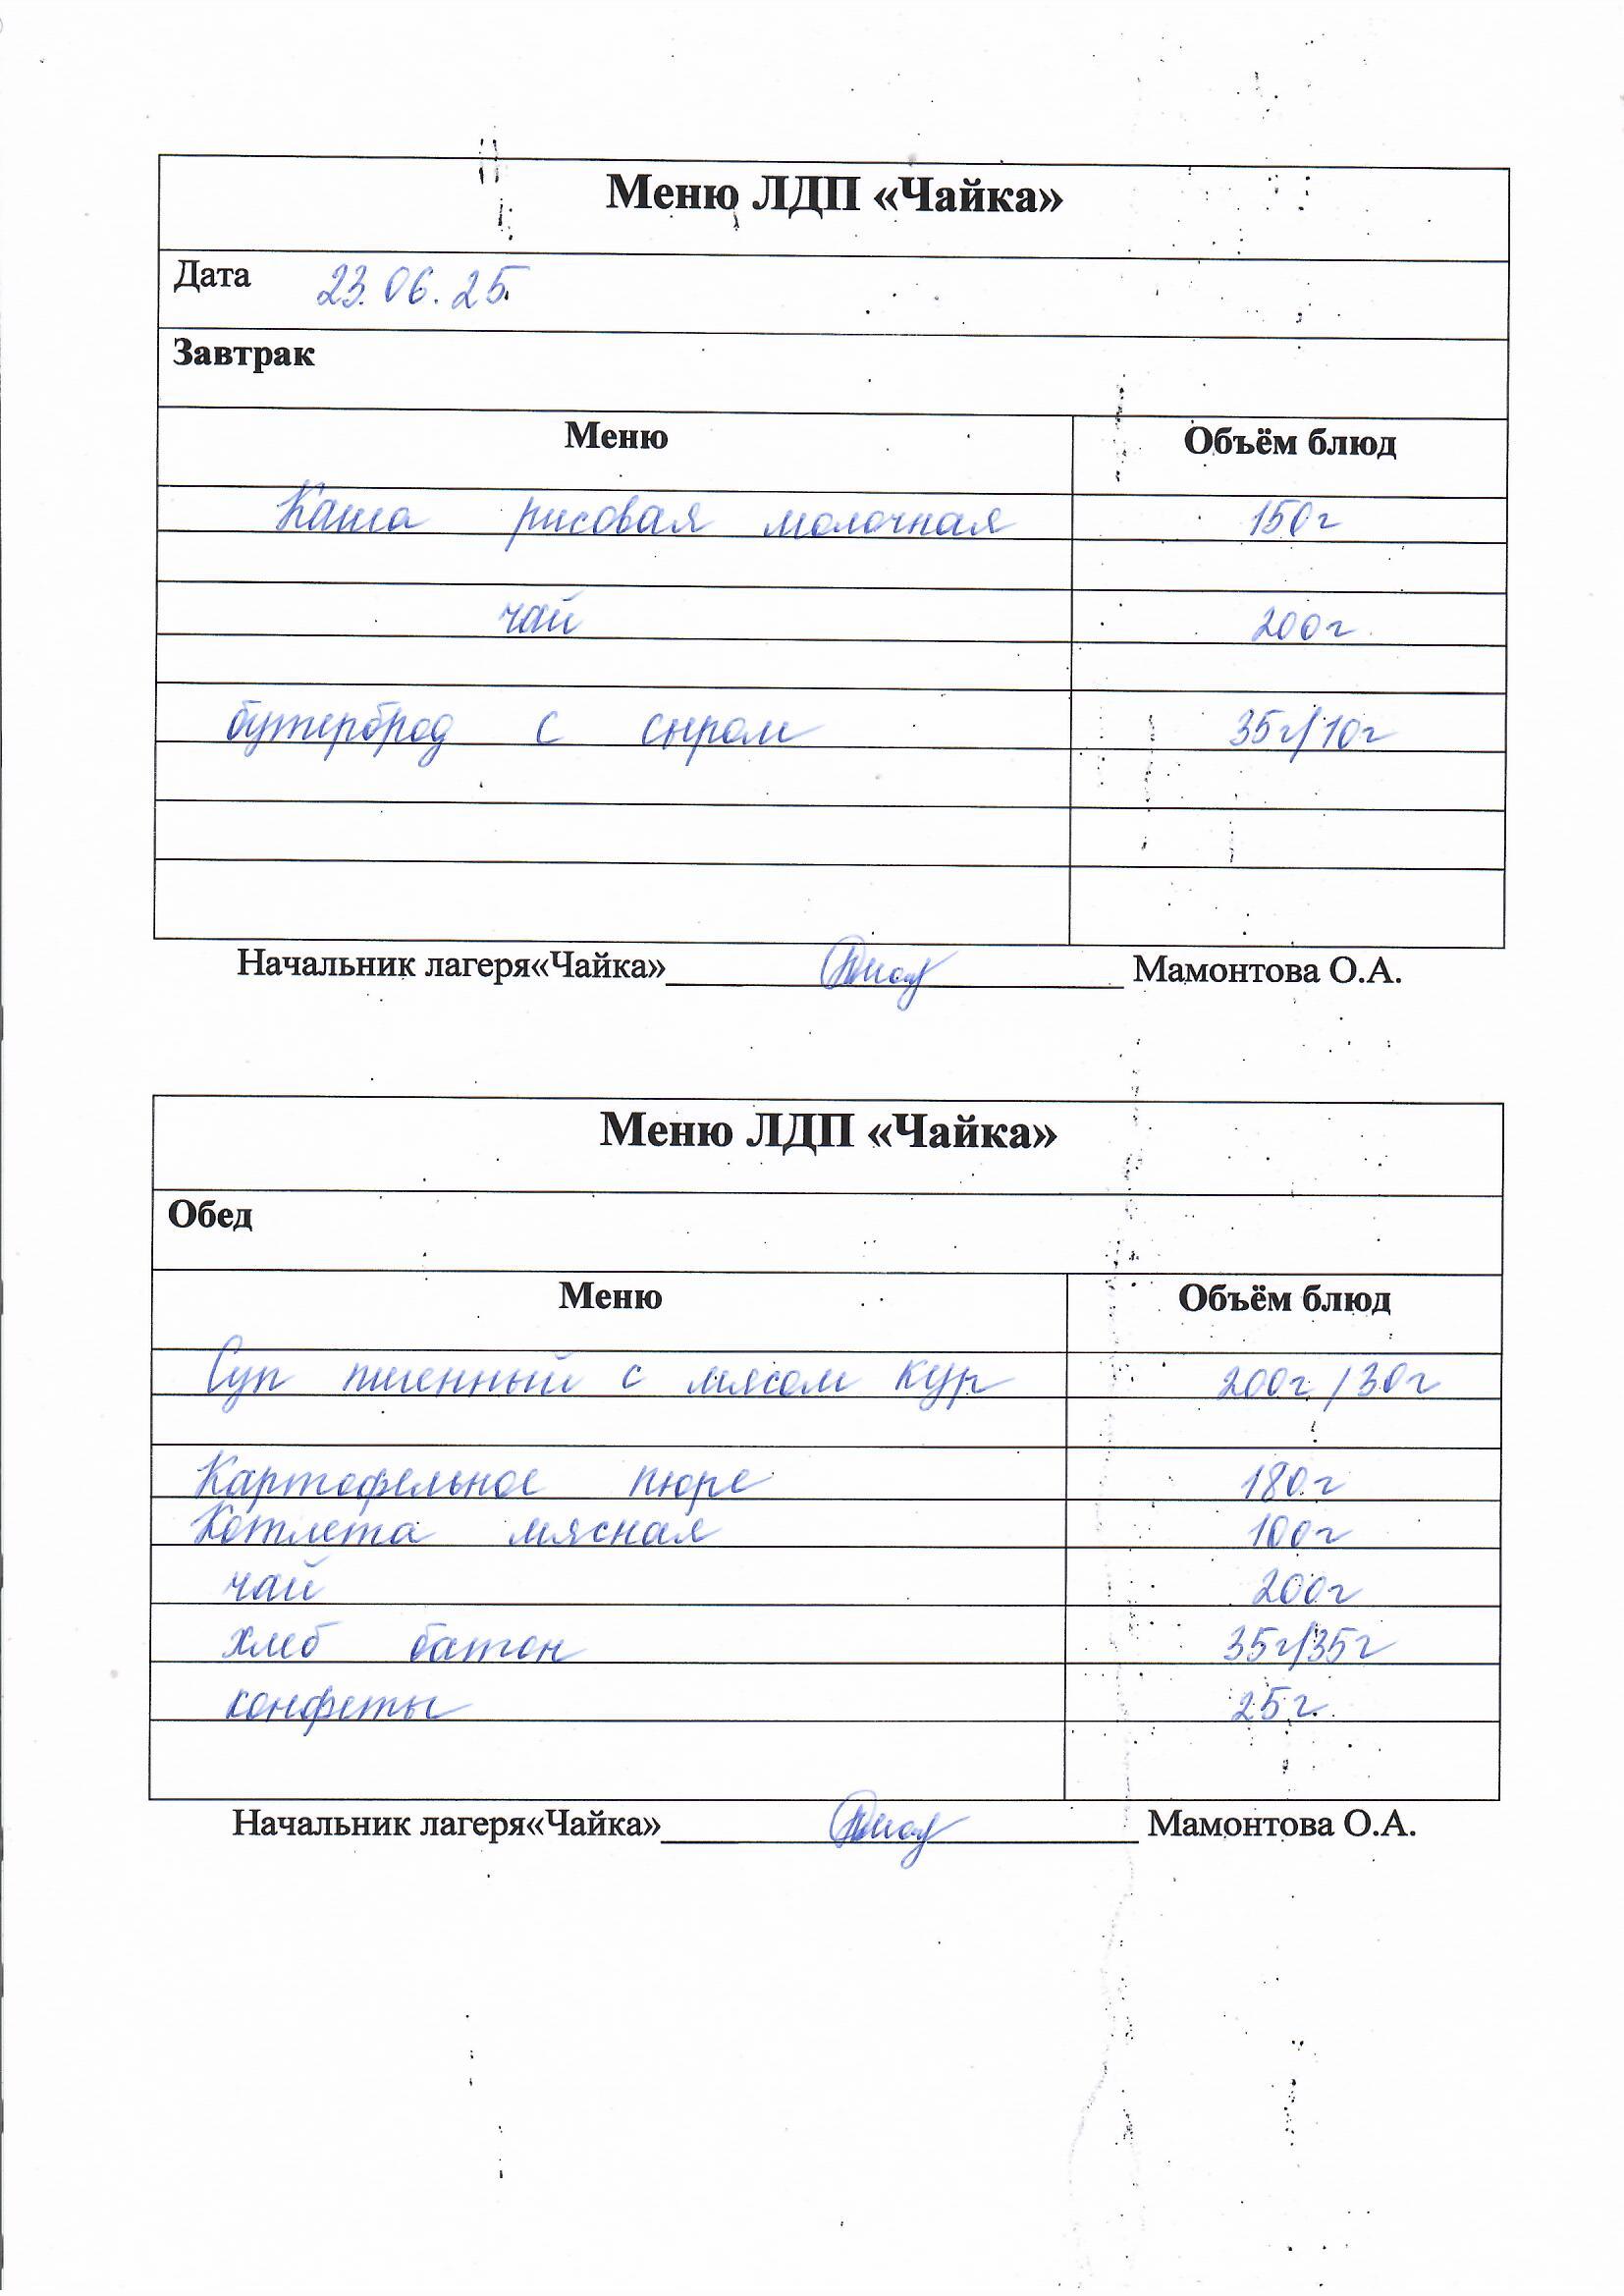 Меню ЛДП «Чайка»
Дата 23.06.25.
Завтрак
Меню Объём блюд
Каша рисовая молочная 150г
чай 200г
бутерброд с сыром 35г/10г
Начальник лагеря«Чайка» Мамонтова О.А.
Меню ЛДП «Чайка»
Обед
Меню Объём блюд
Суп пшенный с мясом кур 200г/30г
Картофельное пюре 180г
Котлета мясная 100г
чай 200г
хлеб батон 35г/35г
конфеты 25г.
Начальник лагеря«Чайка» Мамонтова О.А.